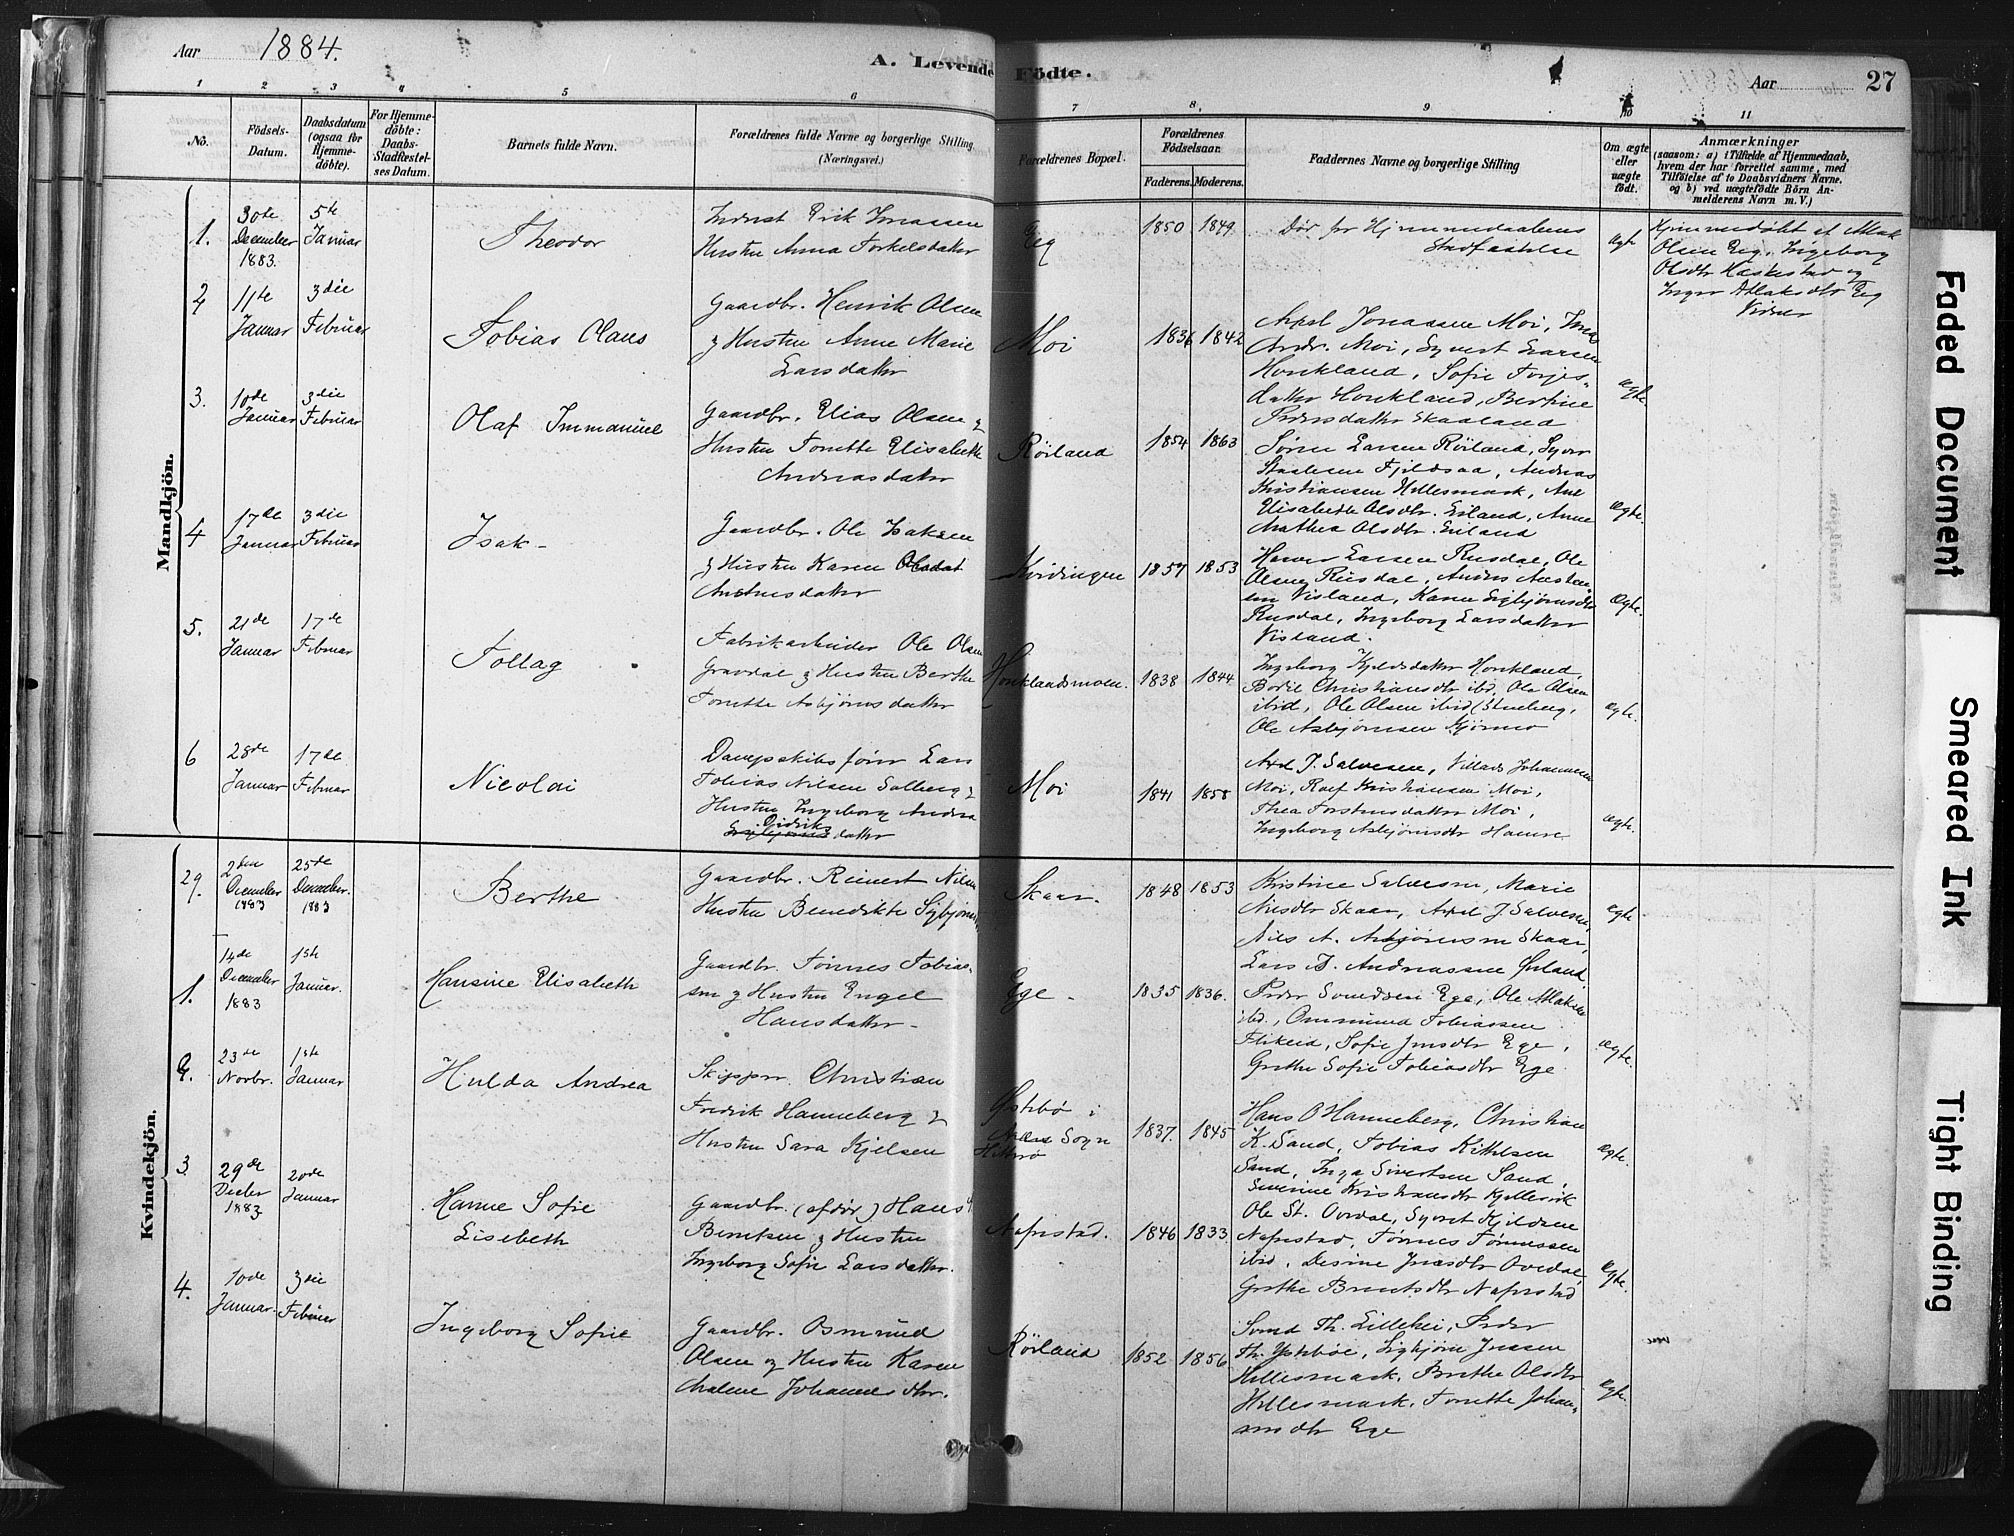 Aar 1884.
A. Levende Födte.
Aar 27
1 2 3 4 5 6 7 8. 9 10 11
No.
Födsels-
Datum.
Daabsdatum
(ogsaa for
Hjemme-
döbte).
For Hjemme-
döbte:
Daabs-
Stadfæstel-
ses Datum.
Barnets fulde Navn.
Forældrenes fulde Navne og borgerlige Stilling
(Næringsvei.)
Forældrenes Bopæl.
Forældrenes
Födselsaar.
Faderens. Moderens.
Faddernes Navne og borgerlige Stilling
Om ægte
eller
uægte
födt.
Anmærkninger
(saasom: a) i Tilfælde af Hjemmedaab,
hvem der har forrettet samme, med
Tilföielse af to Daabsvidners Navne,
og b) ved uægtefödte Börn An-
melderens Navn m. V.)
Mandkjön.
1.
30te
December
1883.
5te
Januar
Theodor
Erik Jonassen
Hustru Anna Torkelsdatter
Eeg
1850 1849
Dör før Hjemmedaabens
Stadfæstelse
ægte
Hjemmedøbt af Atlak
Olsen Eeg, Ingeborg
Olsdtr Haskestad og
Inger Atlaksdtr Eeg
Vidner
2
11te
Januar
3die
Februar
Tobias Olaus
Gaardbr. Henrik Olsen
& Hustru Anne Marie
Larsdatter
Moi
1836 1842
Axel Jonassen Moi, Jonas
Andr. Moi, Syvert Larsen
Honkland, Sofie Torjes-
datter Honkland, Bertine
Pedersdatter Skaaland
ægte.
3.
10de
Januar
3die
Februar
Olaf Immanuel
Gaardbr. Elias Olsen &
Hustru Tonette Elisabeth
Andreasdatter
Röiland
1854 1863
Sören Larsen Röiland, Syver
Staalesen Fjeldsaa, Andreas
Kristiansen Hillesmark, Ane
Elisabeth Olsdtr. Eiland, Anne
Mathea Olsdtr. Eiland
Ægte.
4
17de
Januar
3die
Februar
Isak -
Gaardbr. Ole Isaksen
& Hustru Karen Olsdat
datter
Kvidingen
1857 1853
Larsen Rusdal, Ole
Olsen Rusdal,
Visland, Karen Sigbjørnsdtr
Rusdal, Ingeborg Larsdatter
Visland.
Ægte.
5.
21de
Januar
17de
Februar
Tollag
Fabrikarbeider Ole Olsen
Gravdal & Hustru Berthe
Tonette Asbjörnsdatter
Honklandsmoen.
1838 1844
Ingeborg Kjeldsdatter Honkland,
Bodil Christiansdtr ibid, Ole Olsen
ibid, Ole Olsen ibid (Steneberg,
Ole Asbjörnsen Kjörmo
ægte.
6
28de
Januar
17de
Februar
Nicolai
Dampskibsförer Lars
Tobias Nilsen Salberg &
Hustru Ingeborg Andrea
Didriks
datter
Moi
1841 1858
Axel J. Salvesen, Villads Johannesen
Moi, Rolf Kristiansen Moi,
Thea Torstensdatter Moi,
Ingeborg Asbjörnsdtr Hamre
ægte.
Kvindekjön.
29.
2den
December
1883
25de
December.
1883
Berthe
Gaardbr. Reinert Nilsen
Hustru Benedikte Sigbjørns
Skaar.
1848 1853
Kristine Salvesen, Marie
Nilsdtr Skaar, Axel J. Salvesen,
Nils A. Asbjörnsen Skaar,
Lars T. Andreassen Öiland
ægte
1.
14de
December
1883
1ste
Januar.
Hansine Elisabeth
Gaardbr. Tönnes Tobias-
sen & Hustru Engel
Hansdatter -
Ege -
1835 1836.
Peder Svendsen Ege, Ole Atlaksen
ibd., Ommund Tobiassen
Flikeid, Sofie Jonsdtr Ege,
Grethe Sofie Tobiasdtr Ege
ægte
2.
23de
Novbr.
1ste
Januar
Hulda Andrea
Skipper Christian
Fredrik Hanneberg &
Hustru Sara Kjelsen
Østebö i
Sogn
Hitterö
1837. 1845
Hans O Hanneberg, Christian
K. Sand, Tobias Kittelsen
Sand, Inga Sivertsen Sand,
Severine Kristiansdtr Kjellesvik
ægte.
3
29de
Decbr
1883
20de
Januar
Hanne Sofie
Lisebeth
Gaardbr. (afdör) Hans
Berntsen & Hustru
Ingeborg Sofie Larsdatter.
Nafrstad.
1846 1833
Ole St. Ovedal, Syvert Kjeldsen
Nafrstad, Tönnes Tönnessen
ibid, Desine Jonasdtr Ovedal,
Grethe Berntsdtr Nafrstad
ægte.
4.
10de
Januar.
3die
Februar
Ingeborg Sofie
Gaardbr. Osmund
Olsen og Hustru Karen
Malene Johannesdtr.
Röiland
1852 1856
Svend Th. Lillehei, Peder
Th. Ysteböe, Sigbjörn Jonsen
Hillesmark, Berthe Olsdtr
Hillesmark, Tonette Johan-
nesdtr Ege
ægte.
Faded Document
Smeared Ink
Tight Binding